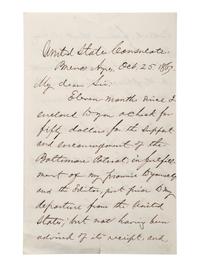 United States Consulate.
Buenos Ayres, Oct. 25. 1867
My dear Sir:
Eleven months since I
enclosed to you a check for
fifty dollars for the support
and encouragement of the
Baltimore Patriot, in fulfil-
ment of my promise to yourself
and the Editor, just prior to my
departure from the United
States; but not having been
advised of its receipt, and